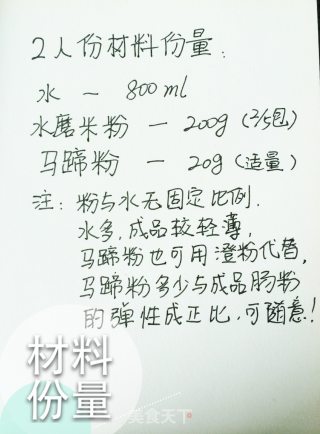 2人份材料份量:
水 — 800ml
水磨米粉 — 200g (2/5包)
马蹄粉 — 20g (适量)
注: 粉与水无固定比例.
水多, 成品较轻薄,
马蹄粉也可用澄粉代替,
马蹄粉多少与成品肠粉
的弹性成正比, 可随意!
材料
份量
美食天下